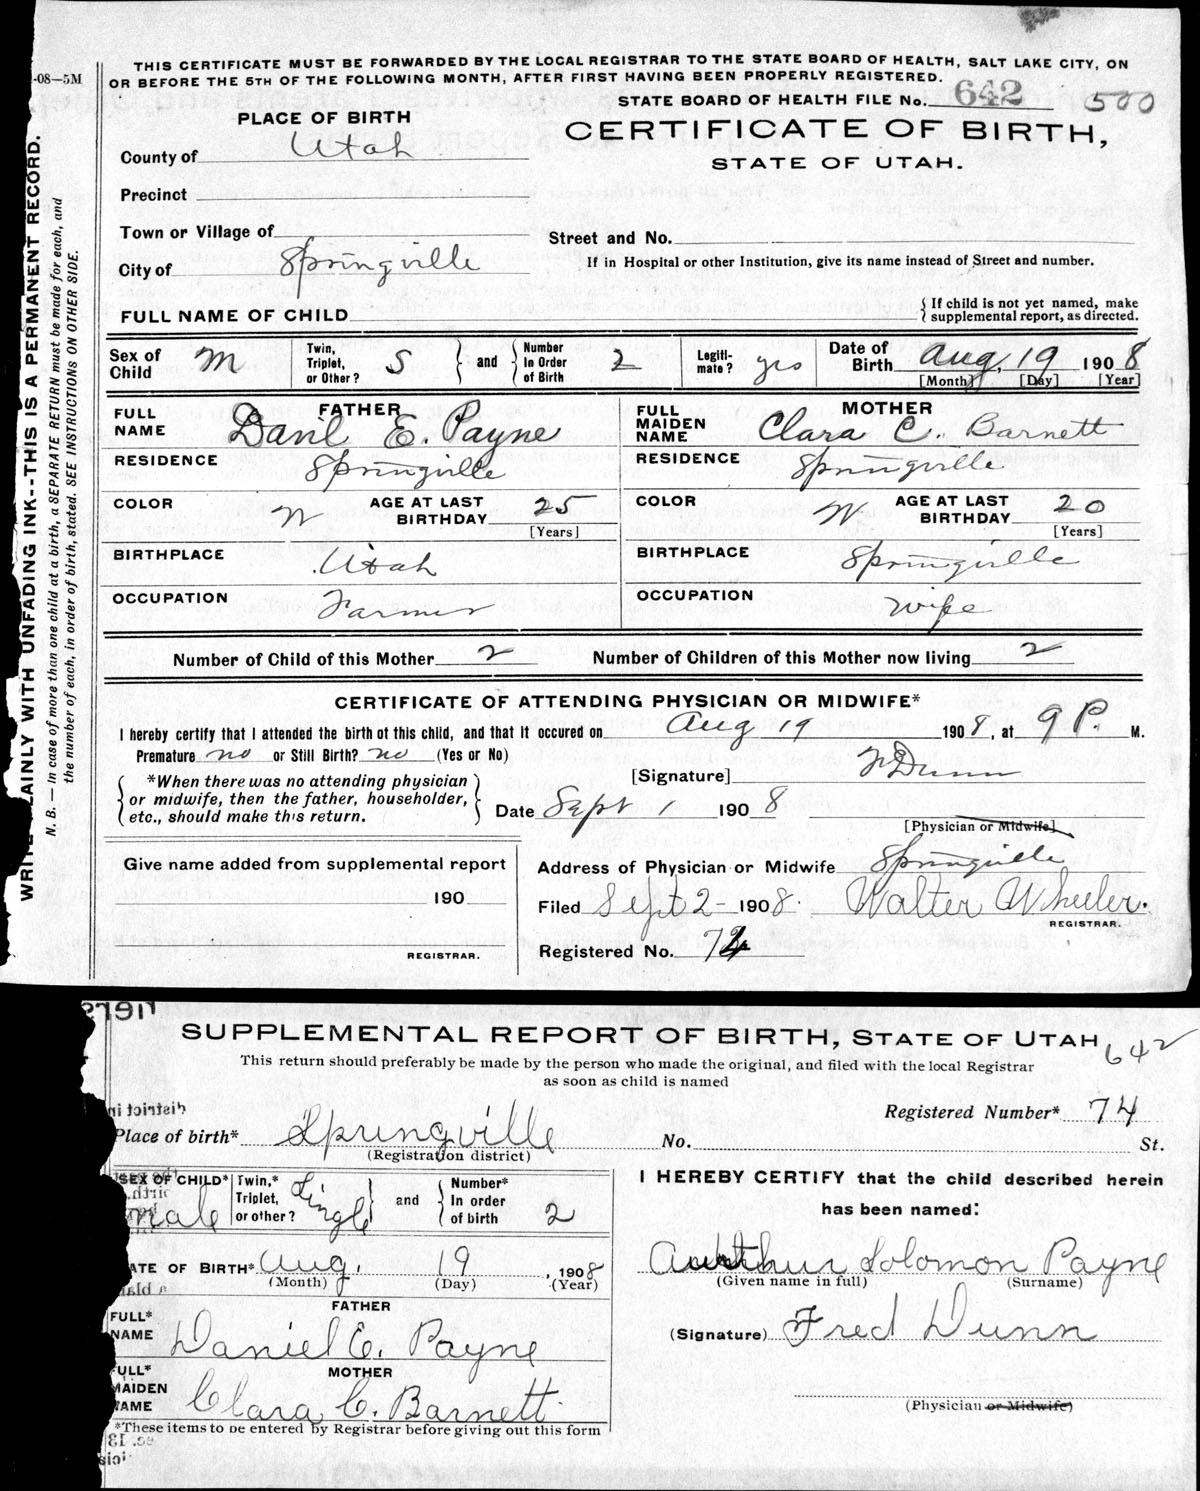 -08—5M
THIS CERTIFICATE MUST BE FORWARDED BY THE LOCAL REGISTRAR TO THE STATE BOARD OF HEALTH, SALT LAKE CITY, ON
OR BEFORE THE 5TH OF THE FOLLOWING MONTH, AFTER FIRST HAVING BEEN PROPERLY REGISTERED.
STATE BOARD OF HEALTH FILE No. 642 500
PLACE OF BIRTH
CERTIFICATE OF BIRTH,
STATE OF UTAH.
County of Utah
Precinct
Town or Village of
Street and No.
City of Springville
If in Hospital or other Institution, give its name instead of Street and number.
FULL NAME OF CHILD
{ If child is not yet named, make
supplemental report, as directed.
Sex of Child M Twin, Triplet, or Other? S } and { Number In Order of Birth 2 Legiti-mate? yes Date of Birth Aug, 19 1908
[Month] [Day] [Year]
FATHER MOTHER
FULL NAME Danil E. Payne FULL MAIDEN NAME Clara C. Barnett
RESIDENCE Springville RESIDENCE Springville
COLOR W AGE AT LAST BIRTHDAY 25 COLOR W AGE AT LAST BIRTHDAY 20
[Years] [Years]
BIRTHPLACE Utah BIRTHPLACE Springville
OCCUPATION Farmer OCCUPATION Wife
Number of Child of this Mother 2 Number of Children of this Mother now living 2
CERTIFICATE OF ATTENDING PHYSICIAN OR MIDWIFE*
I hereby certify that I attended the birth of this child, and that it occured on Aug 19 1908, at 9 P. M.
Premature no or Still Birth? no (Yes or No)
[Signature] F Dunn
{ *When there was no attending physician
or midwife, then the father, householder,
etc., should make this return. }
Date Sept 1 1908
[Physician or Midwife]
Give name added from supplemental report
190
REGISTRAR.
Address of Physician or Midwife Springville
Filed Sept 2- 1908. Walter Wheeler.
REGISTRAR.
Registered No. 74
WRITE PLAINLY WITH UNFADING INK--THIS IS A PERMANENT RECORD.
N. B. — In case of more than one child at a birth, a SEPARATE RETURN must be made for each, and
the number of each, in order of birth, stated. SEE INSTRUCTIONS ON OTHER SIDE.
SUPPLEMENTAL REPORT OF BIRTH, STATE OF UTAH 642
This return should preferably be made by the person who made the original, and filed with the local Registrar
as soon as child is named
Registered Number* 74
Place of birth* Springville No. St.
(Registration district)
SEX OF CHILD* male Twin,* Triplet, or other? Single } and { Number* In order of birth 2
DATE OF BIRTH* Aug. 19, 1908
(Month) (Day) (Year)
FATHER
FULL* NAME Daniel E. Payne
MOTHER
FULL* MAIDEN NAME Clara C. Barnett
*These items to be entered by Registrar before giving out this form
I HEREBY CERTIFY that the child described herein
has been named:
Arthur Solomon Payne
(Given name in full) (Surname)
(Signature) Fred Dunn
(Physician or Midwife)